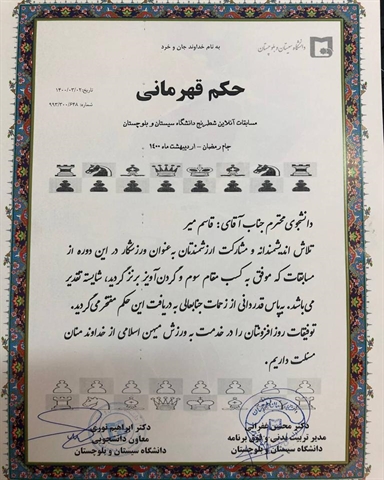 دانشگاه سیستان و بلوچستان
به نام خداوند جان و خرد
حکم قهرمانی
تاریخ: ۱۴۰۰/۰۳/۰۲
شماره: ۹۹۳/۳۰۰/۶۴۸
مسابقات آنلاین شطرنج دانشگاه سیستان و بلوچستان
جام رمضان - اردیبهشت ماه ۱۴۰۰
دانشجوی محترم جناب آقای: قاسم میر
تلاش اندیشمندانه و مشارکت ارزشمندتان به عنوان ورزشکار در این دوره از
مسابقات که موفق به کسب مقام سوم و گردن آویز برنز گردید، شایسته تقدیر
می باشد. بپاس قدردانی از زحمات جنابعالی به دریافت این حکم مفتخر می گردید.
توفیقات روز افزونتان را در خدمت به ورزش میهن اسلامی از خداوند منان
مسئلت داریم.
دکتر
مدیر تربیت بدنی و فوق برنامه
دانشگاه سیستان و بلوچستان
دکتر ابراهیم نوری
معاون دانشجویی
دانشگاه سیستان و بلوچستان